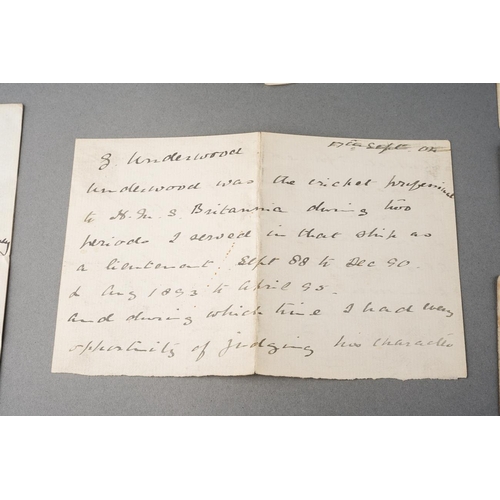 G. Underwood 17th Sept. 04
Underwood was the cricket professional
to H.M.S Britannia during two
periods I served in that ship as
a lieutenant. Sept 88 to Dec 90.
& Aug 1893 to April 95.
and during which time I had every
opportunity of judging his character